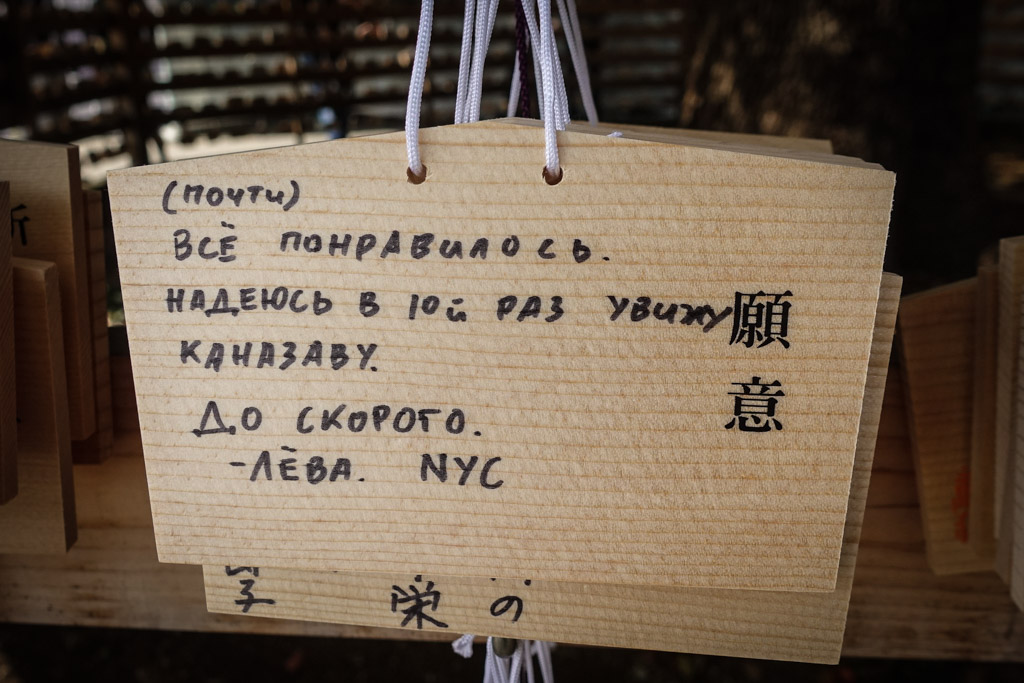 (почти)
ВСЁ ПОНРАВИЛОСЬ.
НАДЕЮСЬ В 10й РАЗ УВИЖУ
КАНАЗАВУ.
ДО СКОРОГО.
-ЛЁВА. NYC
願意
栄の